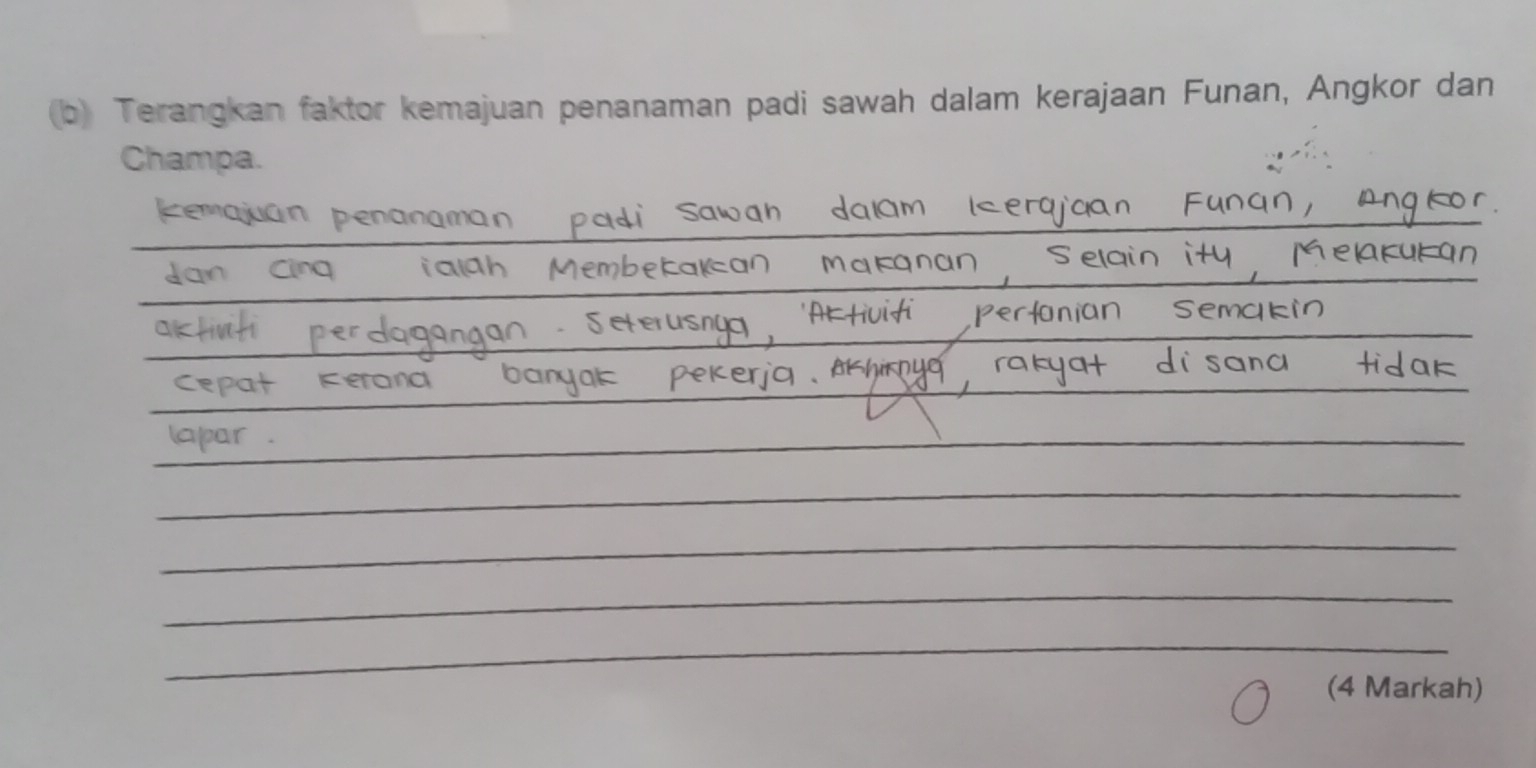 (b) Terangkan faktor kemajuan penanaman padi sawah dalam kerajaan Funan, Angkor dan
Champa.
kemajuan penanaman padi sawah dalam kerajaan Funan, Angkor.
dan cina ialah Membekalkan makanan, Selain itu, Melakukan
aktiviti perdagangan. Seterusnya, Aktiviti pertanian semakin
cepat kerana banyak pekerja. Akhirnya, rakyat disana tidak
lapar.
0 (4 Markah)